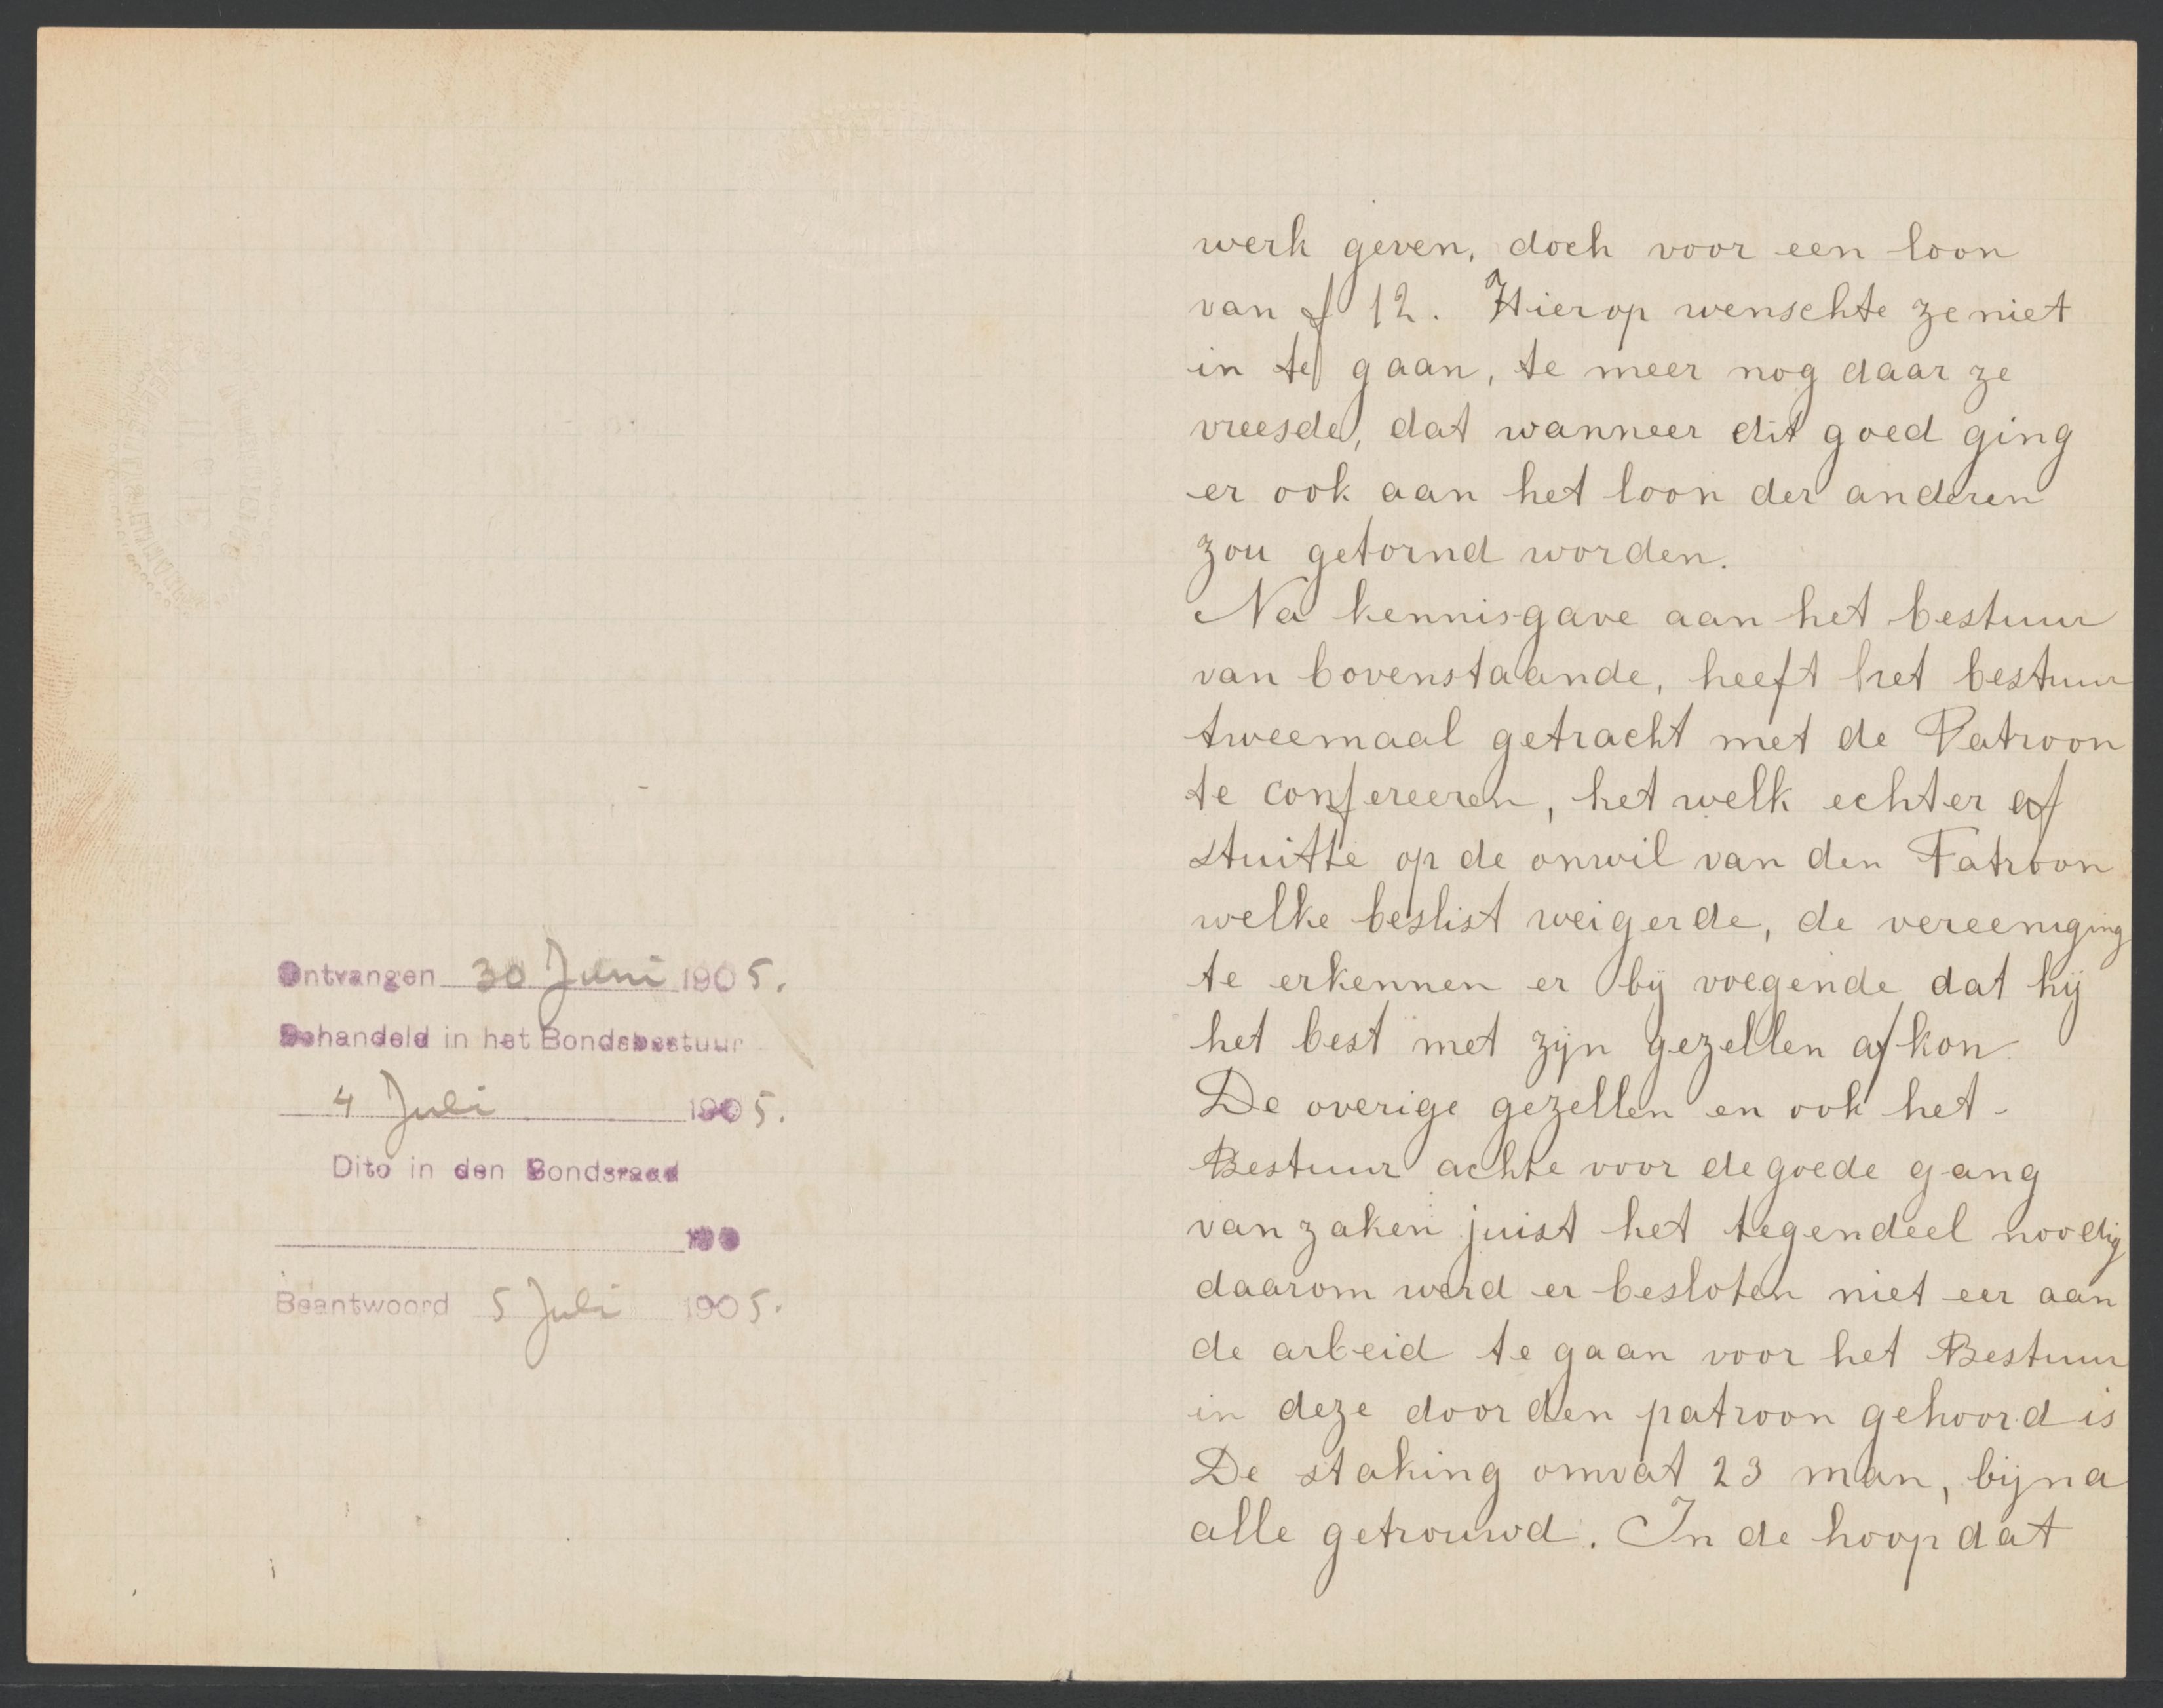 Ontvangen 30 Juni 1905.
Behandeld in het Bondsbestuur
4 Juli 1905.
Dito in den Bondsraad
190
Beantwoord 5 Juli 1905.
werk geven, doch voor een loon
van f 12. Hierop wenschte ze niet
in te gaan, te meer nog daar ze
vreesde, dat wanneer dit goed ging
er ook aan het loon der anderen
zou getornd worden.
Na kennisgave aan het bestuur
van bovenstaande, heeft het bestuur
tweemaal getracht met de Patroon
te confereeren, het welk echter af
stuitte op de onwil van den Patroon
welke beslist weigerde, de vereeniging
te erkennen er bij voegende dat hij
het best met zijn gezellen af kon
De overige gezellen en ook het
Bestuur achte voor de goede gang
van zaken juist het tegendeel noodig
daarom werd er besloten niet eer aan
de arbeid te gaan voor het Bestuur
in deze door den patroon gehoord is
De staking omvat 23 man, bijna
alle getrouwd. In de hoop dat